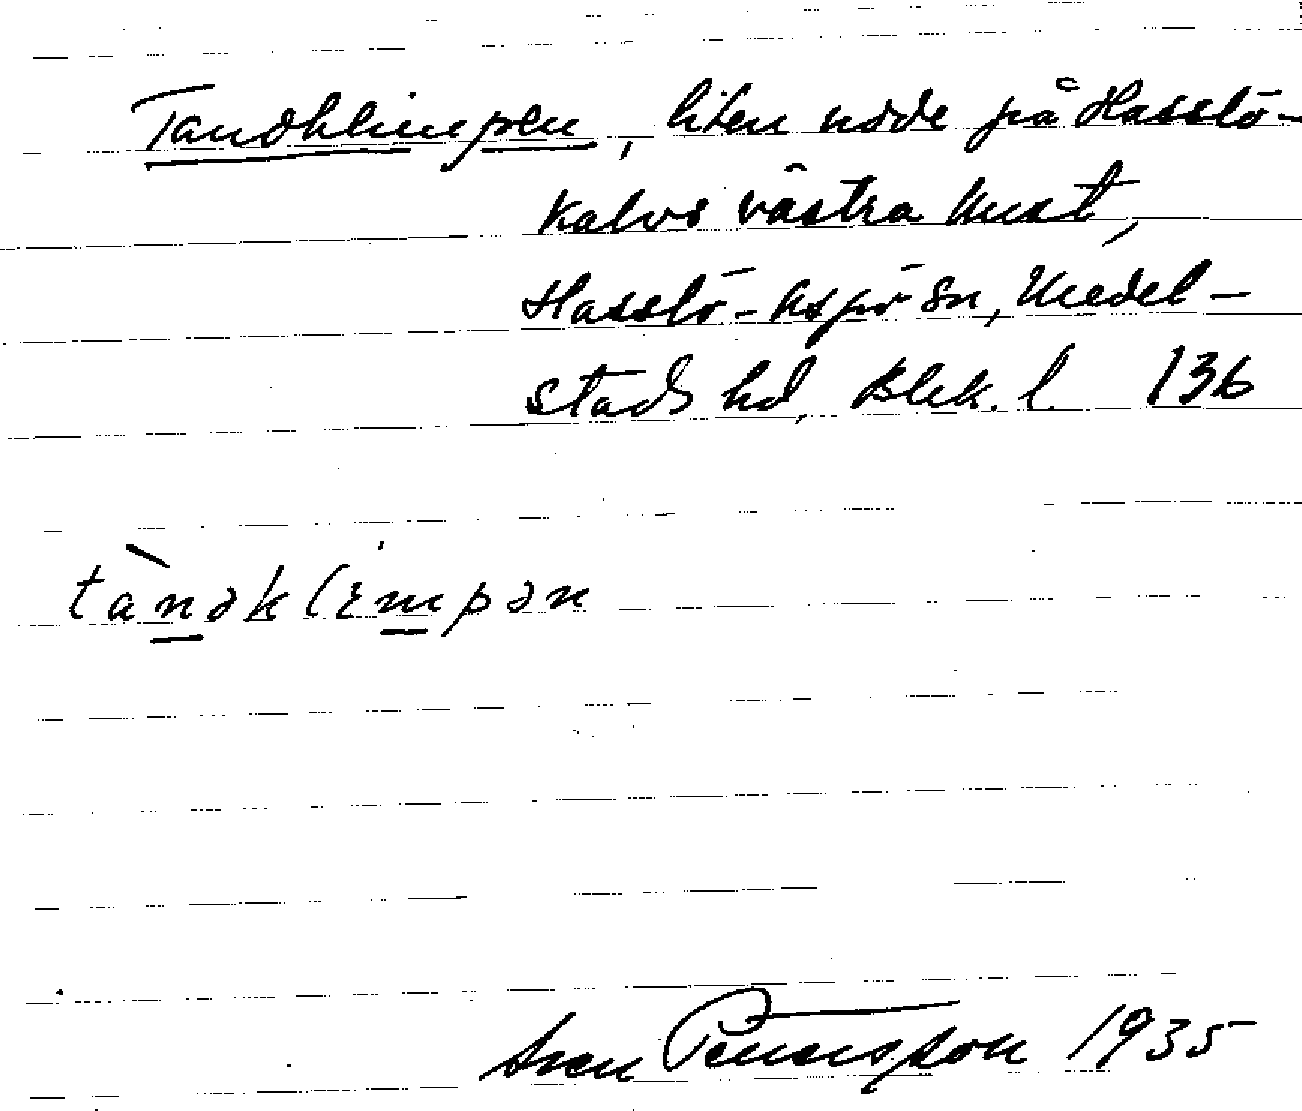 Tandklimpen, liten udde på Hasslö-
Kalvs västra kust,
Hasslö-Aspö sn, Medel-
stads hd, Blek. l. 136
tànəklɪmpən
Sven Pettersson 1935